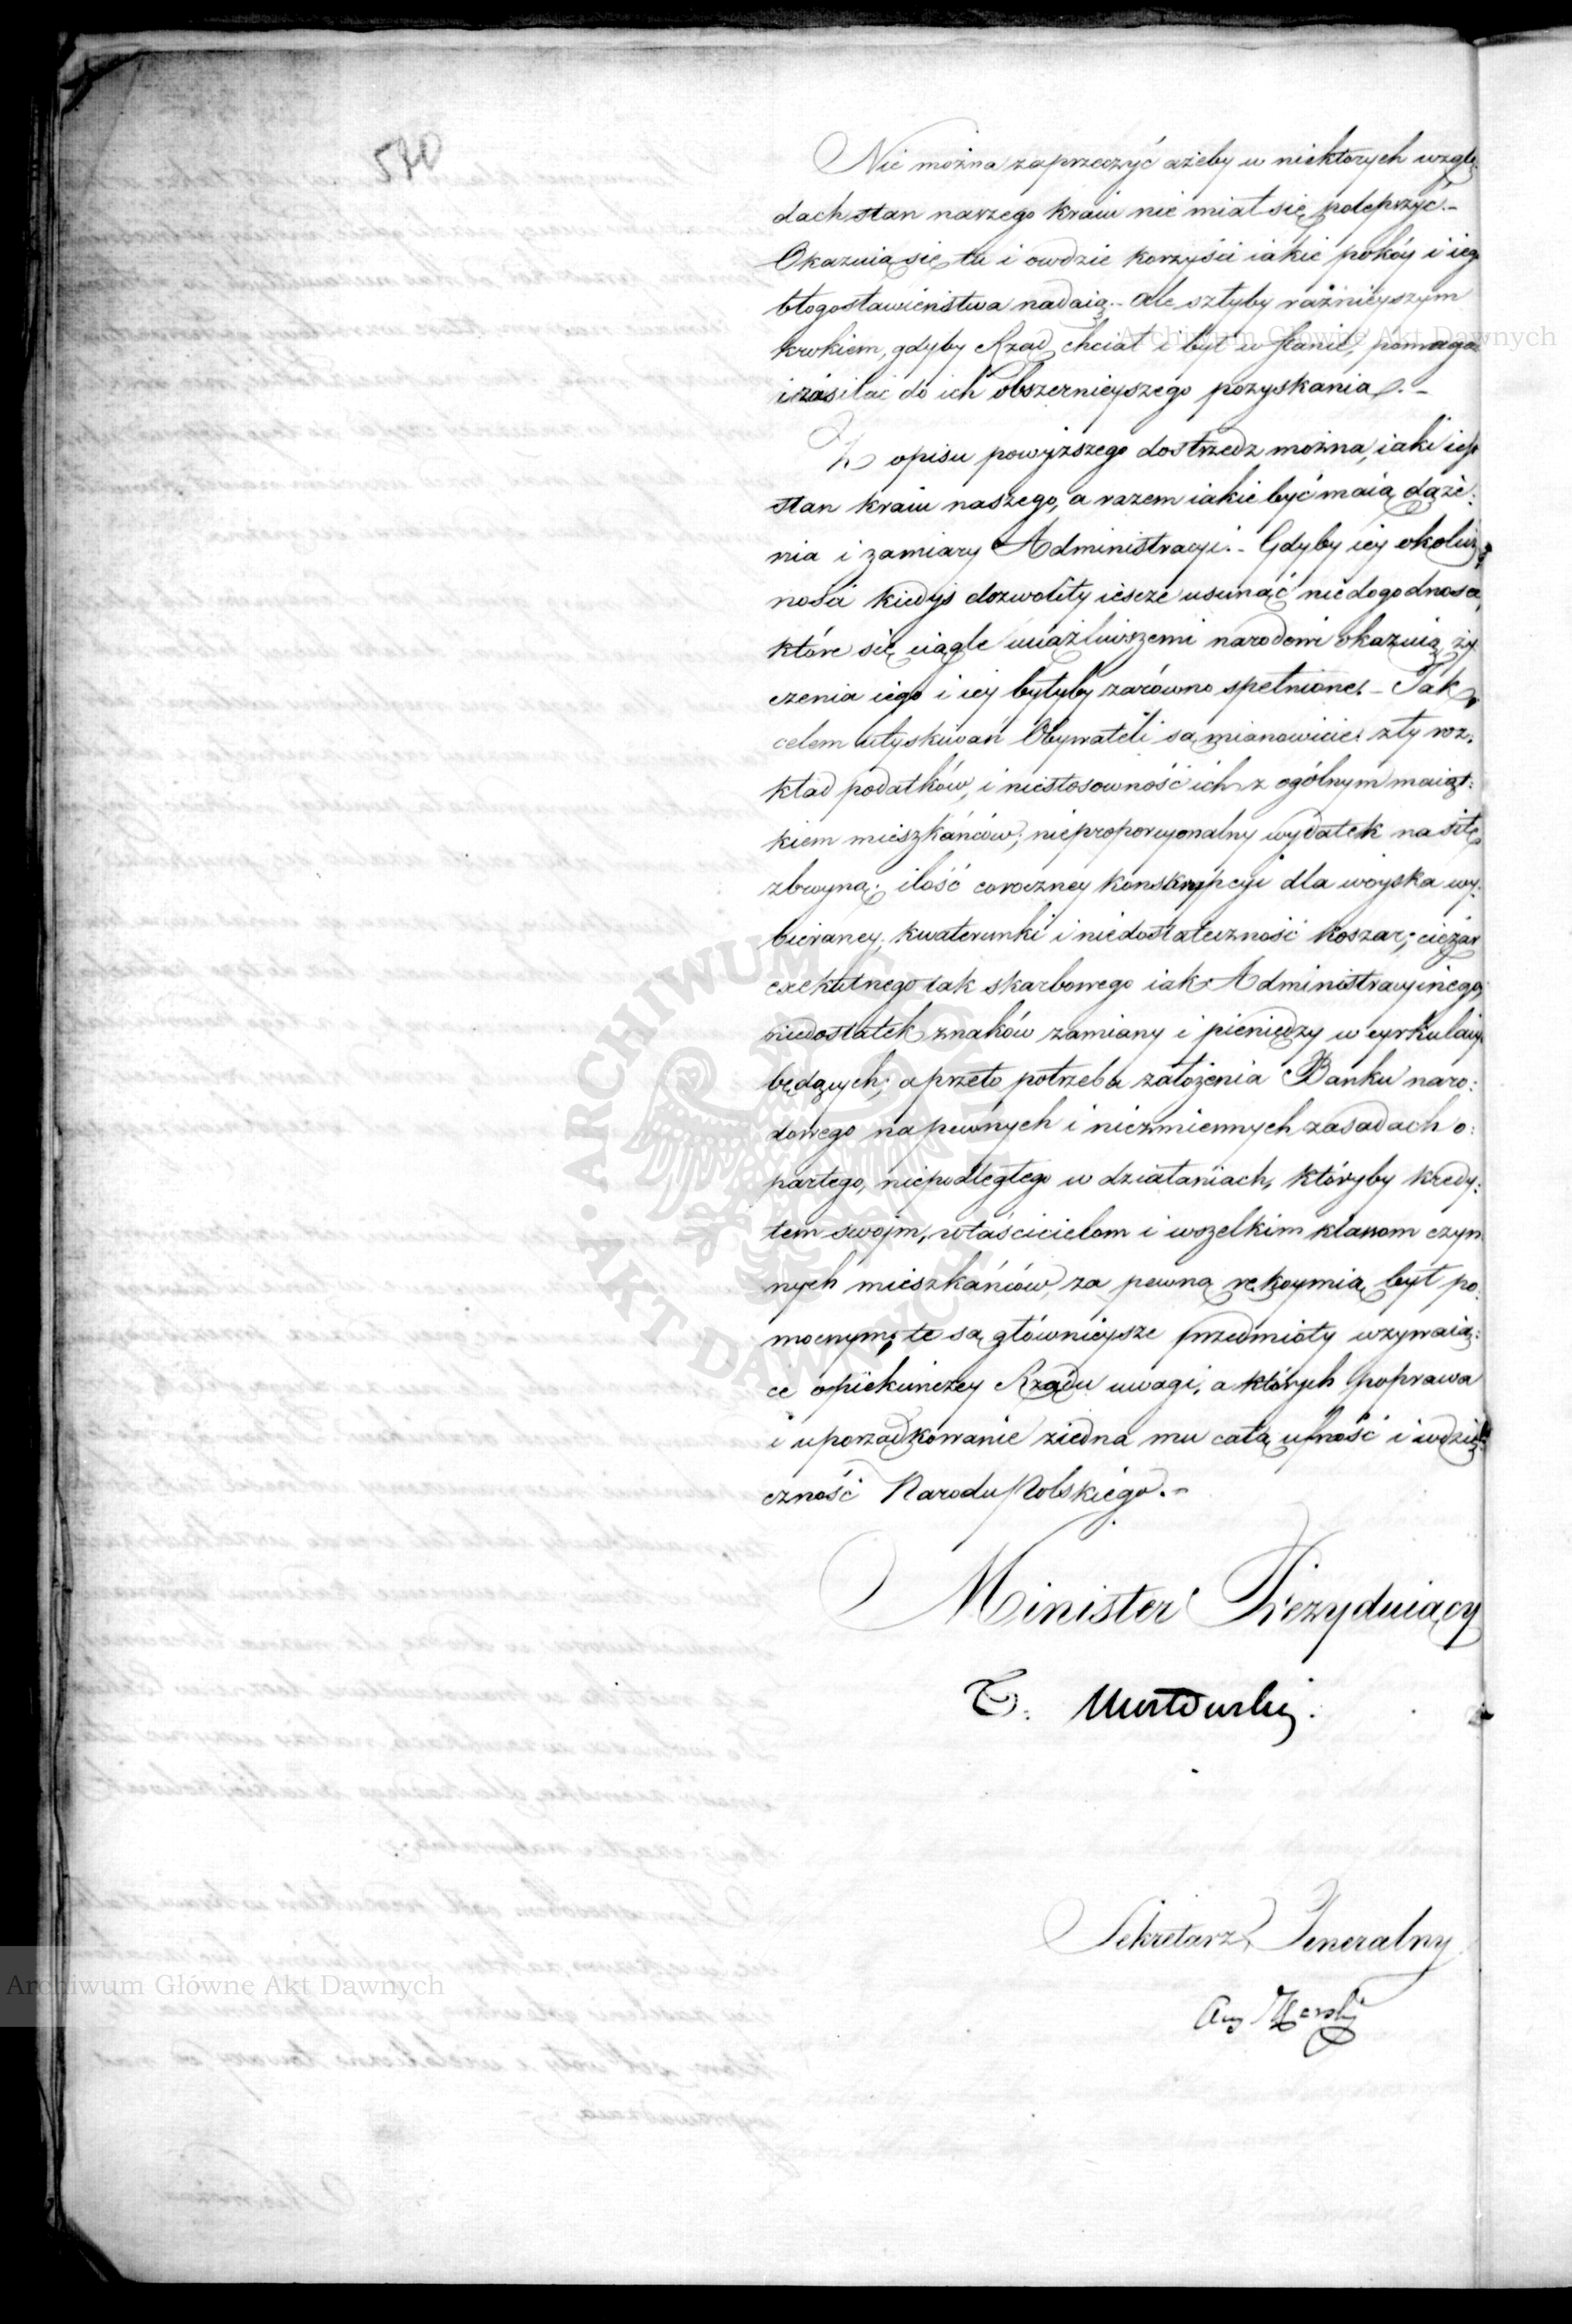 570
Nie można zaprzeczyć ażeby w niektorych wzglę
dach stan naszego kraiu nie miał się polepszyć.-
Okazuią się tu i owdzie korzyści iakie pokóy i ieg
błogosławieństwa nadaią.- ale szłyby raźnieyszym
krokiem, gdyby Rząd chciał i był w stanie, pomaga
i zasilać do ich obszernieyszego pozyskania.-
Z opisu powyższego dostrzedz można, iaki iest
stan kraiu naszego, a razem iakie być maią dąże:
nia i zamiary Administracyi.- Gdyby iey okolicz
ności kiedyś dozwoliły ieszcze usunąć niedogodności,
które się ciągle uciążliwszemi narodowi okazuią, ży
czenia iego i iey byłyby zarówno spełnione.- Tak
celem utyskiwań Obywateli są mianowicie: zły roz:
kład podatków, i niestosowność ich z ogólnym maiąt:
kiem mieszkańców; nieproporcyonalny wydatek na siłę
zbroyną; ilość coroczney konskrypcyi dla woyska wy:
bieraney; kwaterunki i niedostateczność koszar; ciężar
exekutnego tak skarbowego iak Administracyinego;
niedostatek znaków zamiany i pieniędzy w cyrkulacyi
będących; a przeto potrzeba założenia Banku naro:
dowego na pewnych i niezmiennych zasadach o:
partego, niepodległego w działaniach, któryby kredy:
tem swoim, właścicielom i wszelkim klassom czyn
nych mieszkańców, za pewną rękoymią był po:
mocnym; te są główniejsze przedmioty wzywaią:
ce opiekuńczey Rządu uwagi, a których poprawa
i uporządkowanie ziedna mu całą ufność i wdzię
czność Narodu Polskiego.-
Minister Prezyduiący
T. Mostowski.
Sekretarz Jeneralny
Aug Karski
Archiwum Główne Akt Dawnych
Archiwum Główne Akt Dawnych
ARCHIWUM GŁÓWNE · AKT DAWNYCH ·